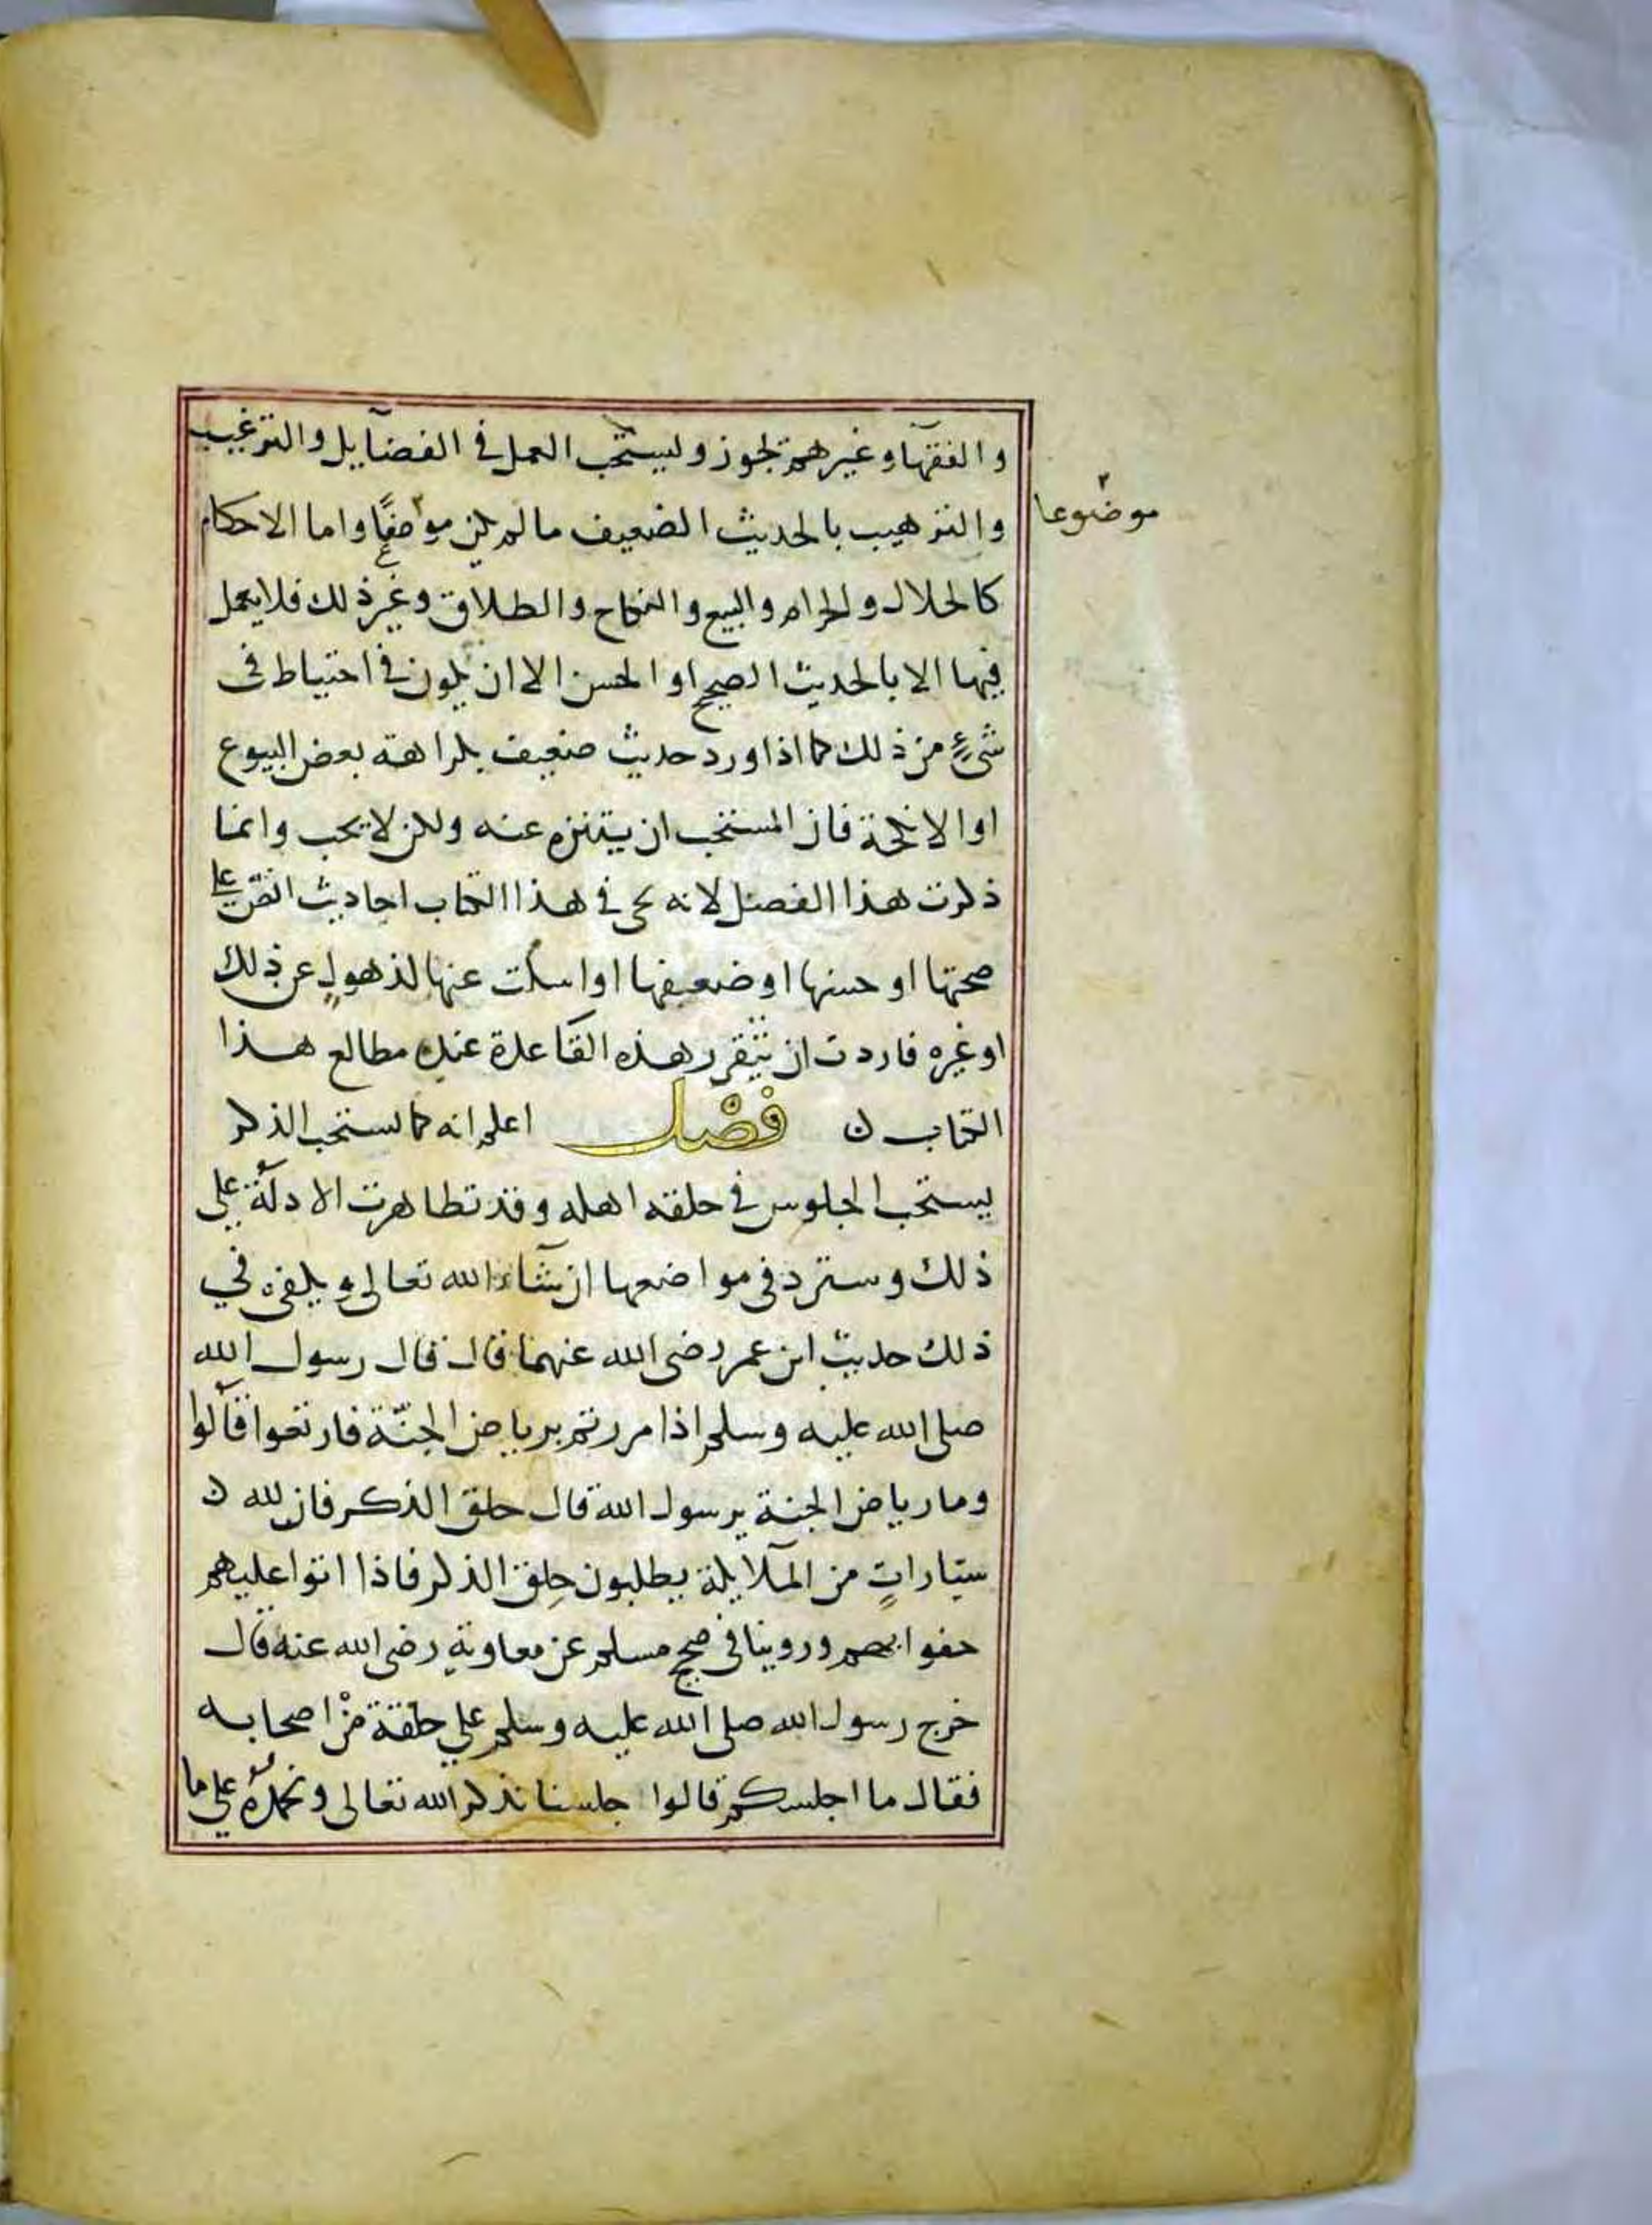 والفقهآ وغيرهم يجوز ويستحب العمل في الفضآيل والترغيب
والترهيب بالحديث الضعيف ما لم يكن مواضعًا واما الاحكام
موضوعا
كالحلال والحرام والبيع والنكاح والطلاق وغير ذلك فلا يعمل
فيها الا بالحديث الصحيح او الحسن الا ان يكون في احتياط في
شيءٍ من ذلك كما اذا ورد حديث ضعيف بكراهته بعض البيوع
او الانكحة فان المستحب ان يتنزه عنه ولكن لا يجب وانما
ذكرت هذا الفصل لانه يجي في هذا الكتاب احاديث انصّ على
صحتها او حسنها او ضعيفها او اسكت عنها لذهولٍ عن ذلك
او غيره فاردت ان تتقرر هذه القاعدة عند مطالع هذا
الكتاب ن فصْل اعلم انه كما يستحب الذكر
يستحب الجلوس في حلقه اهله وقد تظاهرت الادلّة على
ذلك وسترد في مواضعها ان شآء الله تعالى ويكفي في
ذلك حديث ابن عمر رضي الله عنهما قال قال رسول الله
صلى الله عليه وسلم اذا مررتم برياض الجنّة فارتعوا قالوا
وما رياض الجنة يرسول الله قال حلق الذكر فان لله ن
سيّاراتٍ من الملآيكة يطلبون حِلق الذكر فاذا اتوا عليهم
حفوا بهم وروينا في صحيح مسلم عن معاوية رضي الله عنه قال
خرج رسول الله صلى الله عليه وسلم علي حلقة منْ اصحابه
فقال ما اجلسكم قالوا جلسنا نذكر الله تعالى ونحمدُه على ما